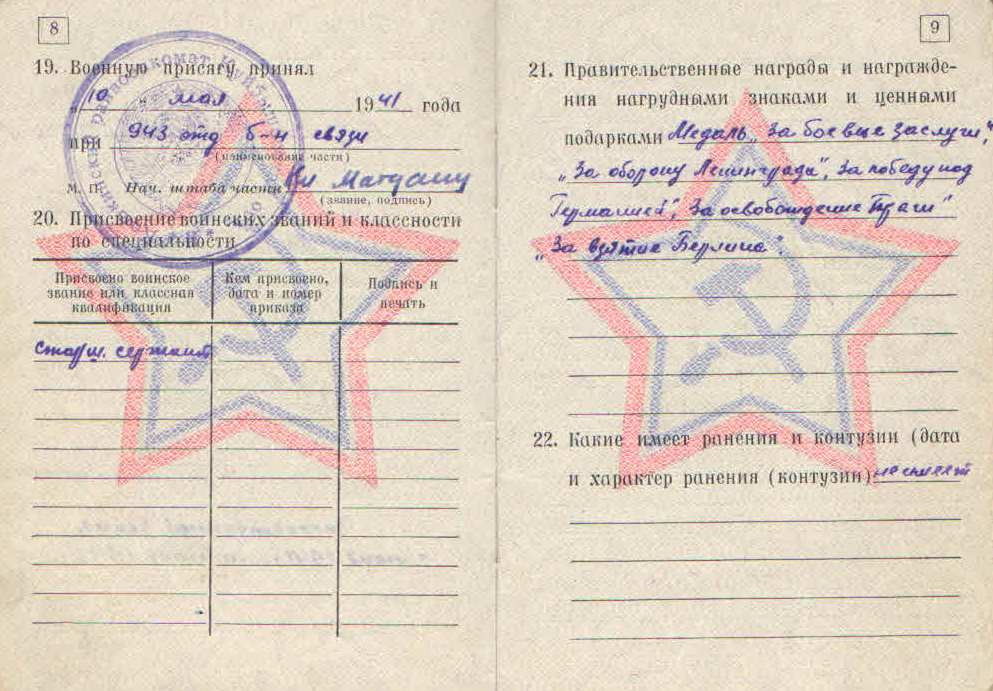 8
19. Военную присягу принял
„ 10 „ мая 1941 года
при 943 отд б-н связи
(наименование части)
М. П. Нач. штаба части
(звание, подпись)
20. Присвоение воинских званий и классности
по специальности
Присвоено воинское
звание или классная
квалификация
Кем присвоено,
дата и номер
приказа
Подпись и
печать
Старш. сержант
9
21. Правительственные награды и награжде-
ния нагрудными знаками и ценными
подарками Медаль „За боевые заслуги",
„За оборону Ленинграда", За победу над
Германией", За освобождение Праги"
„За взятие Берлина".
22. Какие имеет ранения и контузии (дата
и характер ранения (контузии) не имеет